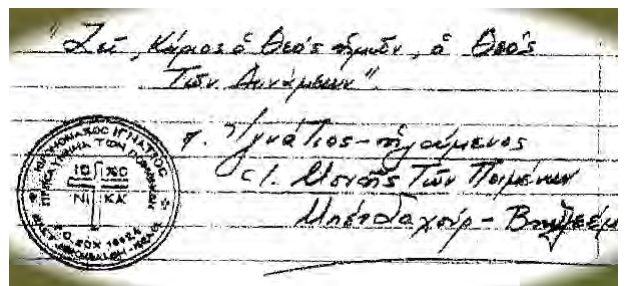 "Ζεῖ, Κύριος ὁ Θεός ἡμῶν, ὁ Θεός
Τῶν Δυνάμεων"
π. Ἰγνάτιος-ἡγούμενος
Μονῆς Τῶν Ποιμένων
Μπέτσαχούρ - Βηθλεέμ
ΙΕΡΟΜΟΝΑΧΟΣ ΙΓΝΑΤΙΟΣ
ΤΩΝ ΠΟΙΜΕΝΩΝ
IC XC
ΝΙ ΚΑ